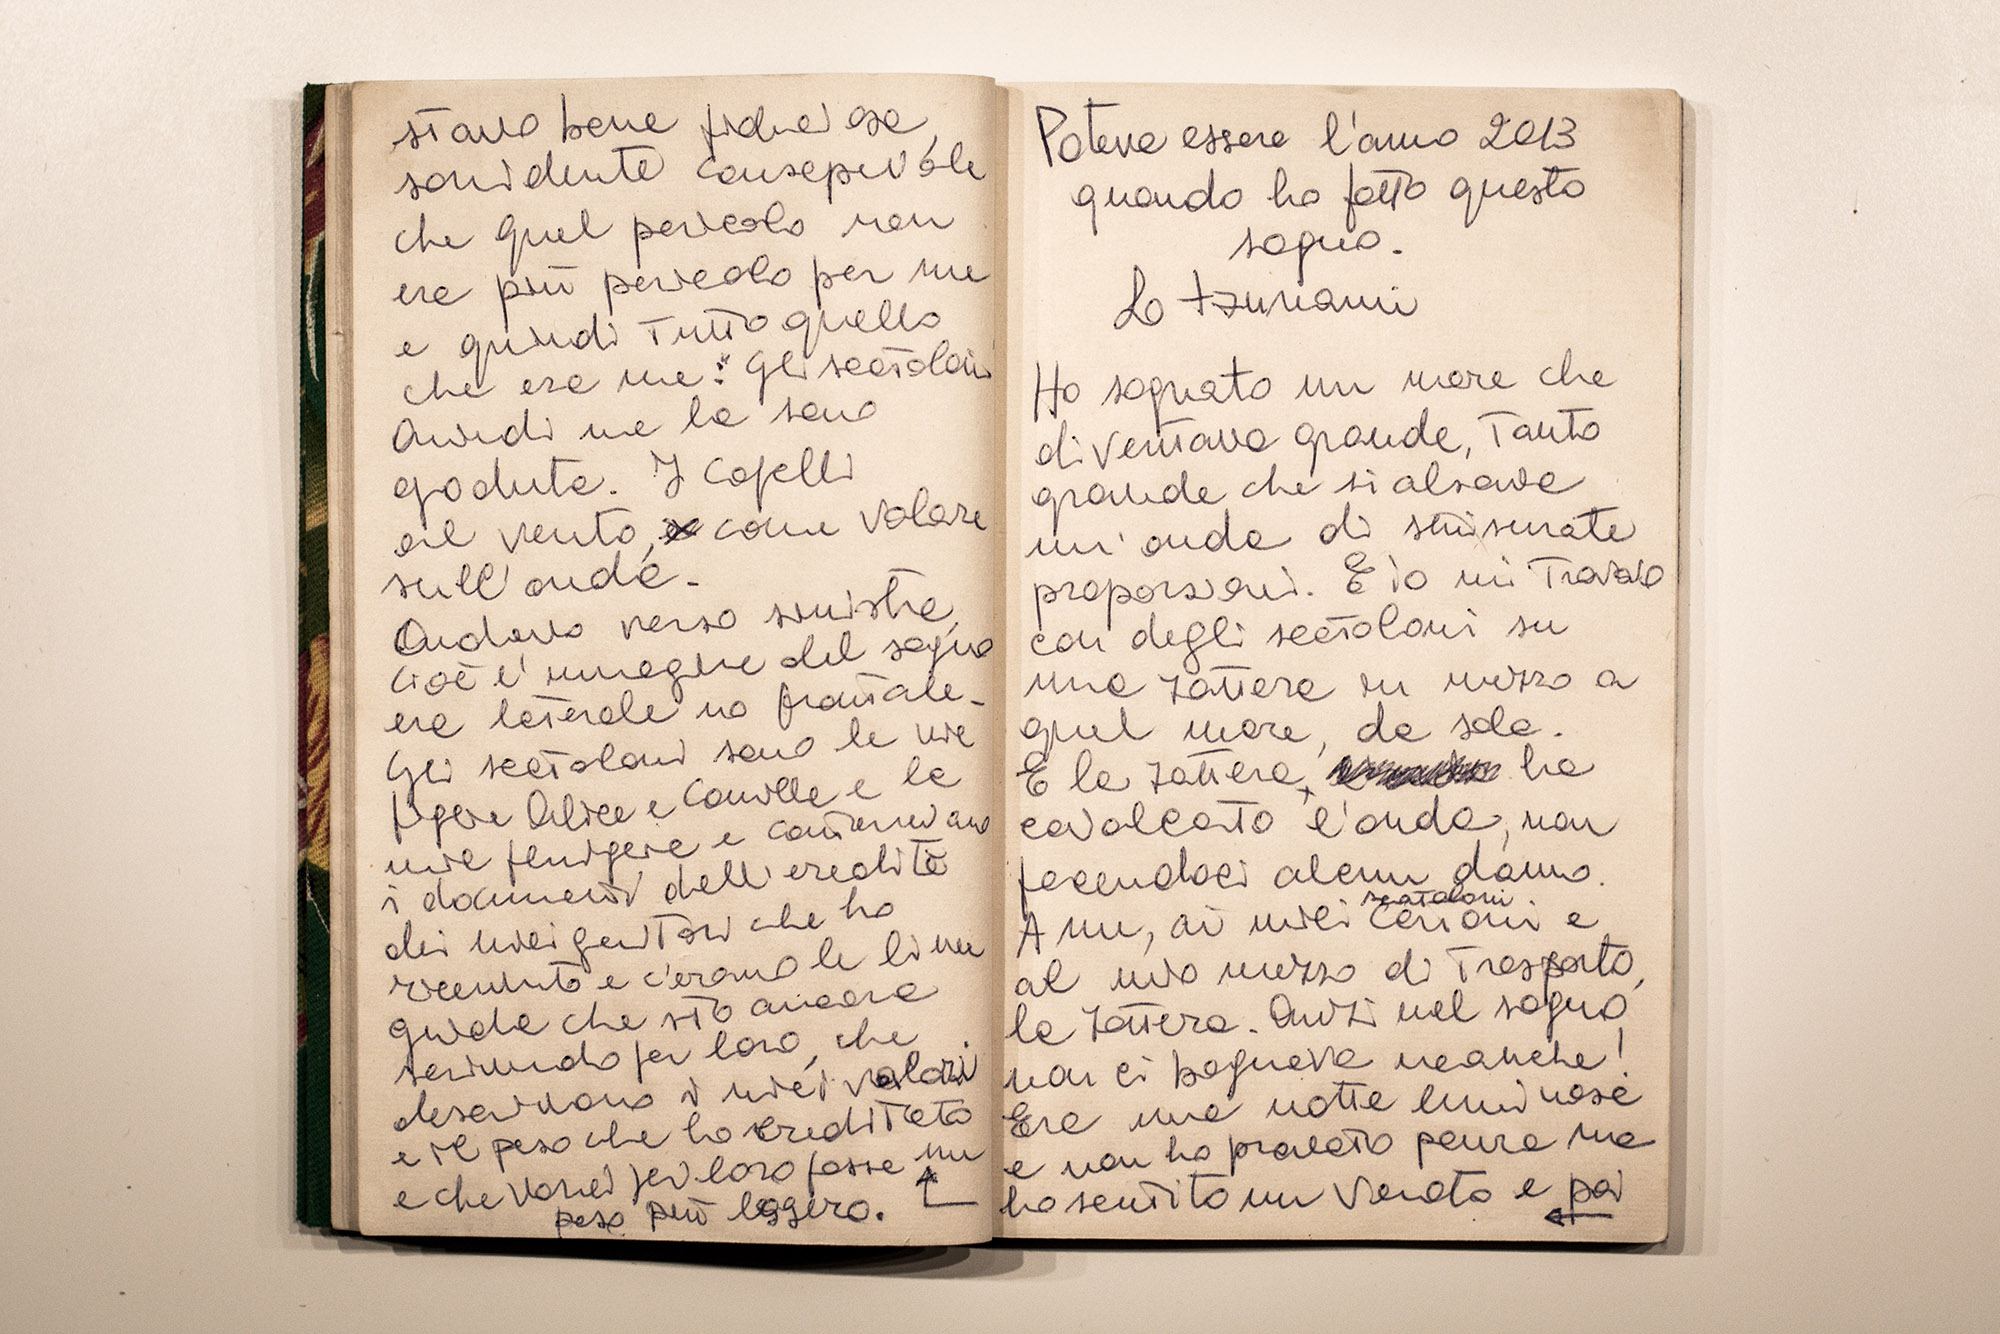 stavo bene fiduciosa,
sorridente consapevole
che quel pericolo non
era più pericolo per me
e quindi tutto quello
che era me: gli scatoloni
Quindi me la sono
goduta. I capelli
al vento, come volare
sull'onda.
Andavo verso sinistra,
cioè l'immagine del sogno
era laterale no frontale.
Gli scatoloni sono le mie
figlie Alice e Camille e la
mia e contenevano
i documenti dell'eredità
dei miei genitori che ho
ricevuto e c'erano le linee
guida che sto ancora
scrivendo per loro, che
descrivono i miei valori
e il peso che ho ereditato
e che vorrei per loro fosse un
peso più leggero.
Poteva essere l'anno 2013
quando ho fatto questo
sogno.
Lo tzunami
Ho sognato un mare che
diventava grande, tanto
grande che si alsava
un'onda di smisurate
proporzioni. E io mi trovavo
con degli scatoloni su
una zattera in mezzo a
quel mare, da sola.
E la zattera, ha
cavalcato l'onda, non
facendoci alcun danno.
scatoloni
A me, ai miei cartoni e
al mio mezzo di trasporto,
la zattera. Anzi nel sogno
non ci bagnava neanche!
Era una notte luminosa
e non ho provato paura ma
ho sentito un vento e poi